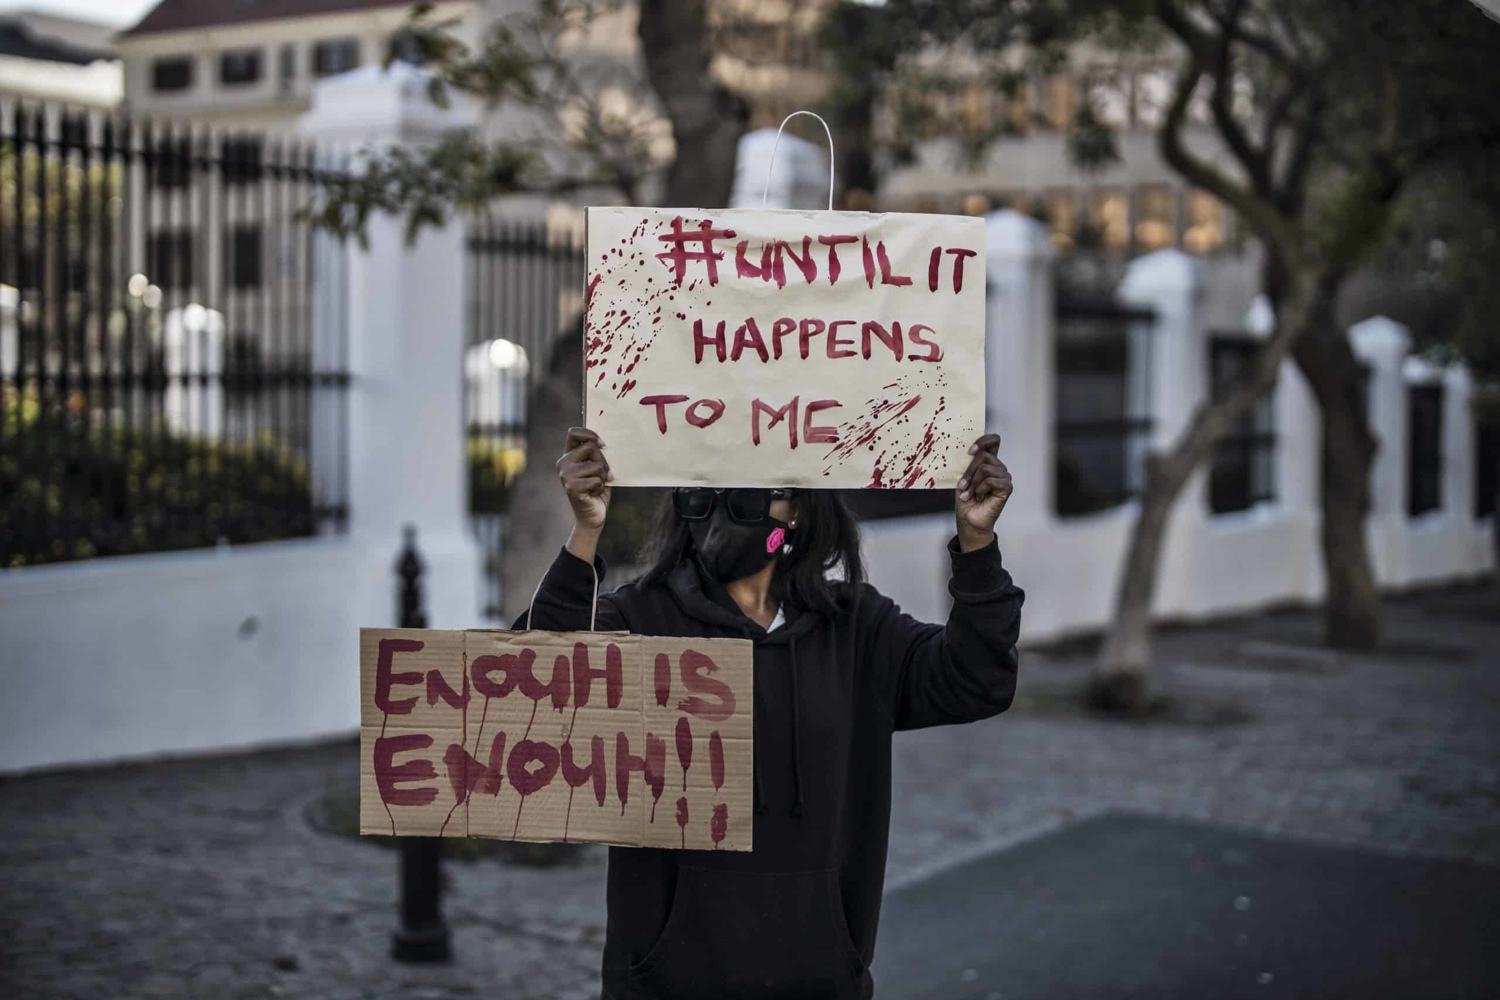 #UNTIL IT
HAPPENS
TO ME
ENOUH IS
ENOUH!!